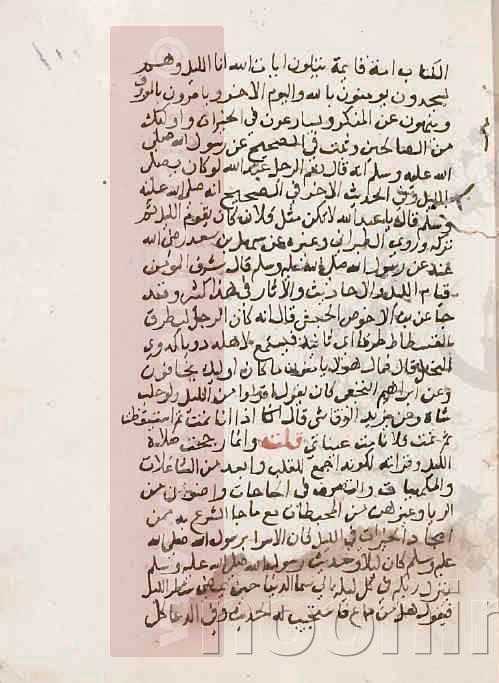 الكتاب امة قايمة يتلون ايات الله انا الليل وهم
يسجدون يومنون بالله واليوم الاخر ويامرون بالمعروف
وينهون عن المنكر ويسارعون في الخيرات واوليك
من الصالحين وثبت في الصحيح عن رسول الله صلى
الله عليه وسلم انه قال نعم الرجل عبد الله لو كان يصلي
الليل وفي الحديث الاخر في الصحيح انه صلى الله عليه
وسلم قال يا عبد الله لا تكن مثل فلان كان يقوم الليل ثم
تركه وروي الطبراني وغيره عن سهل بن سعد رضي الله
عنه عن رسول الله صلى الله عليه وسلم قال شرف المومن
قيام الليل والاحاديث والاثار في هذا كثيرة وقد
جا عن ابي الاحوص الجشمي قال انه كان الرجل ليطرق
الفسطاط طروقا اي ياتيه فيسمع لاهله دويا كدوي
النحل قال فما بال هولا يامنون ما كان اوليك يخافون
وعن ابراهيم النخعي كان يقول اقروا من الليل ولو حلب
شاة وعن يزيد الرقاشي قال اذا انا نمت ثم استيقظت
ثم نمت فلا نامت عيناي قلت وانما رجحت صلاة
الليل وقراته لكونه اجمع للقلب وابعد من الشاغلات
والملهيات والتصرف في الحاجات واصون من
الريا وغيره من المحبطات مع ما جا الشرع به من
ايجاد الخيرات في الليل فان الاسرا برسول الله صلى الله
عليه وسلم كان ليلا وحديث رسول الله صلى الله عليه وسلم
ينزل ربكم في كل ليلة الي سما الدنيا حين يمضي شطر الليل
فيقول هل من داع فاستجيب له الحديث وفي
noomr